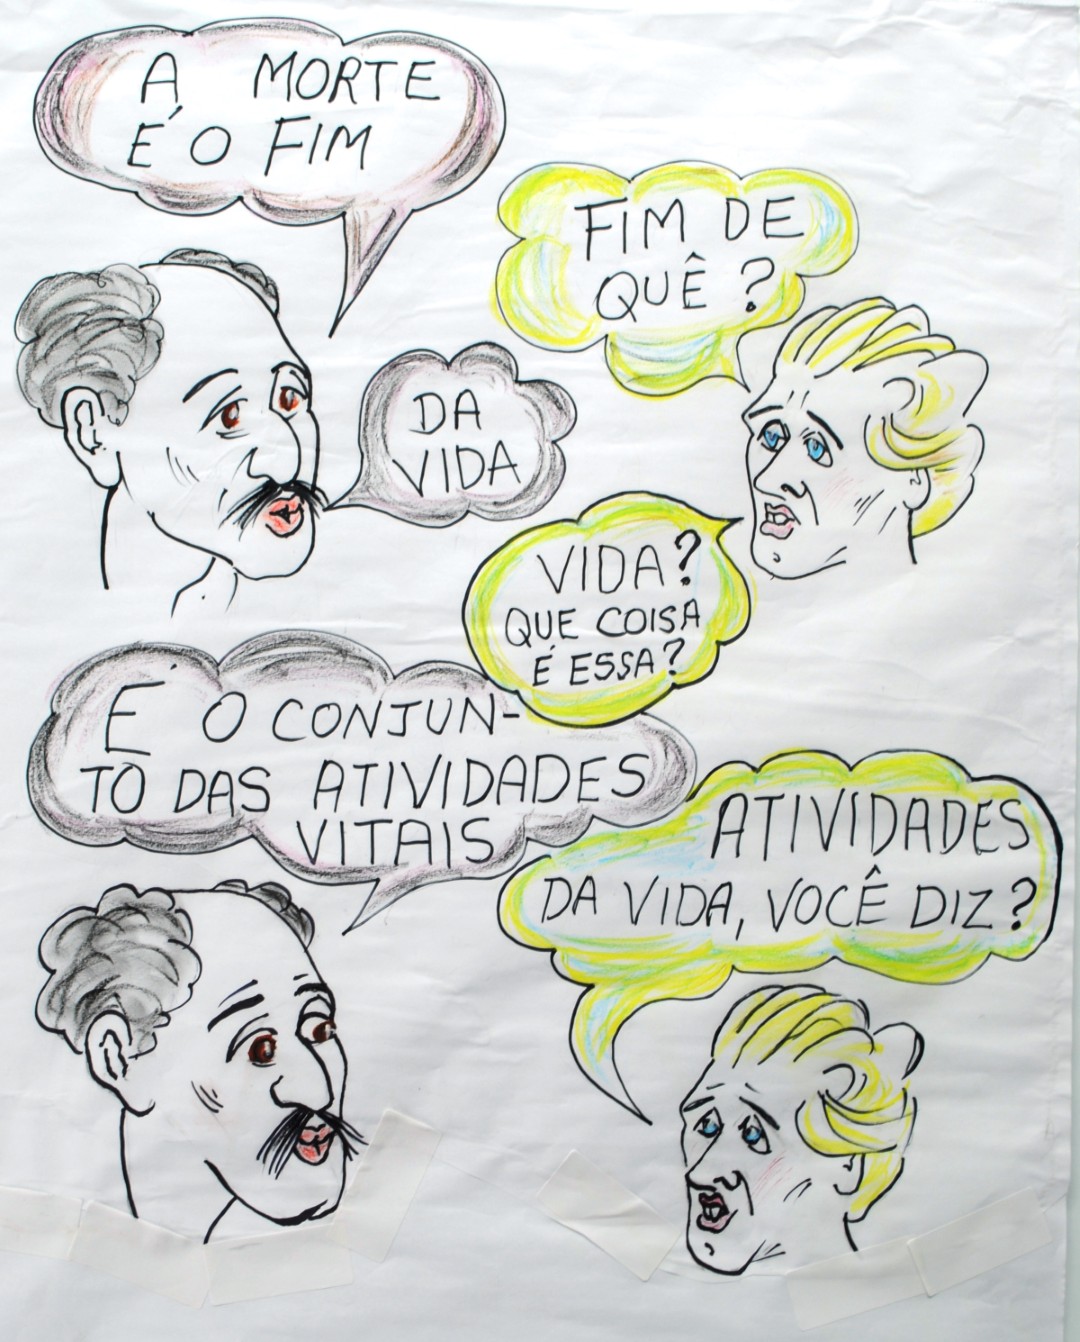 A MORTE
É O FIM
FIM DE
QUÊ?
DA
VIDA
VIDA?
QUE COISA
É ESSA?
É O CONJUN-
TO DAS ATIVIDADES
VITAIS
ATIVIDADES
DA VIDA, VOCÊ DIZ?